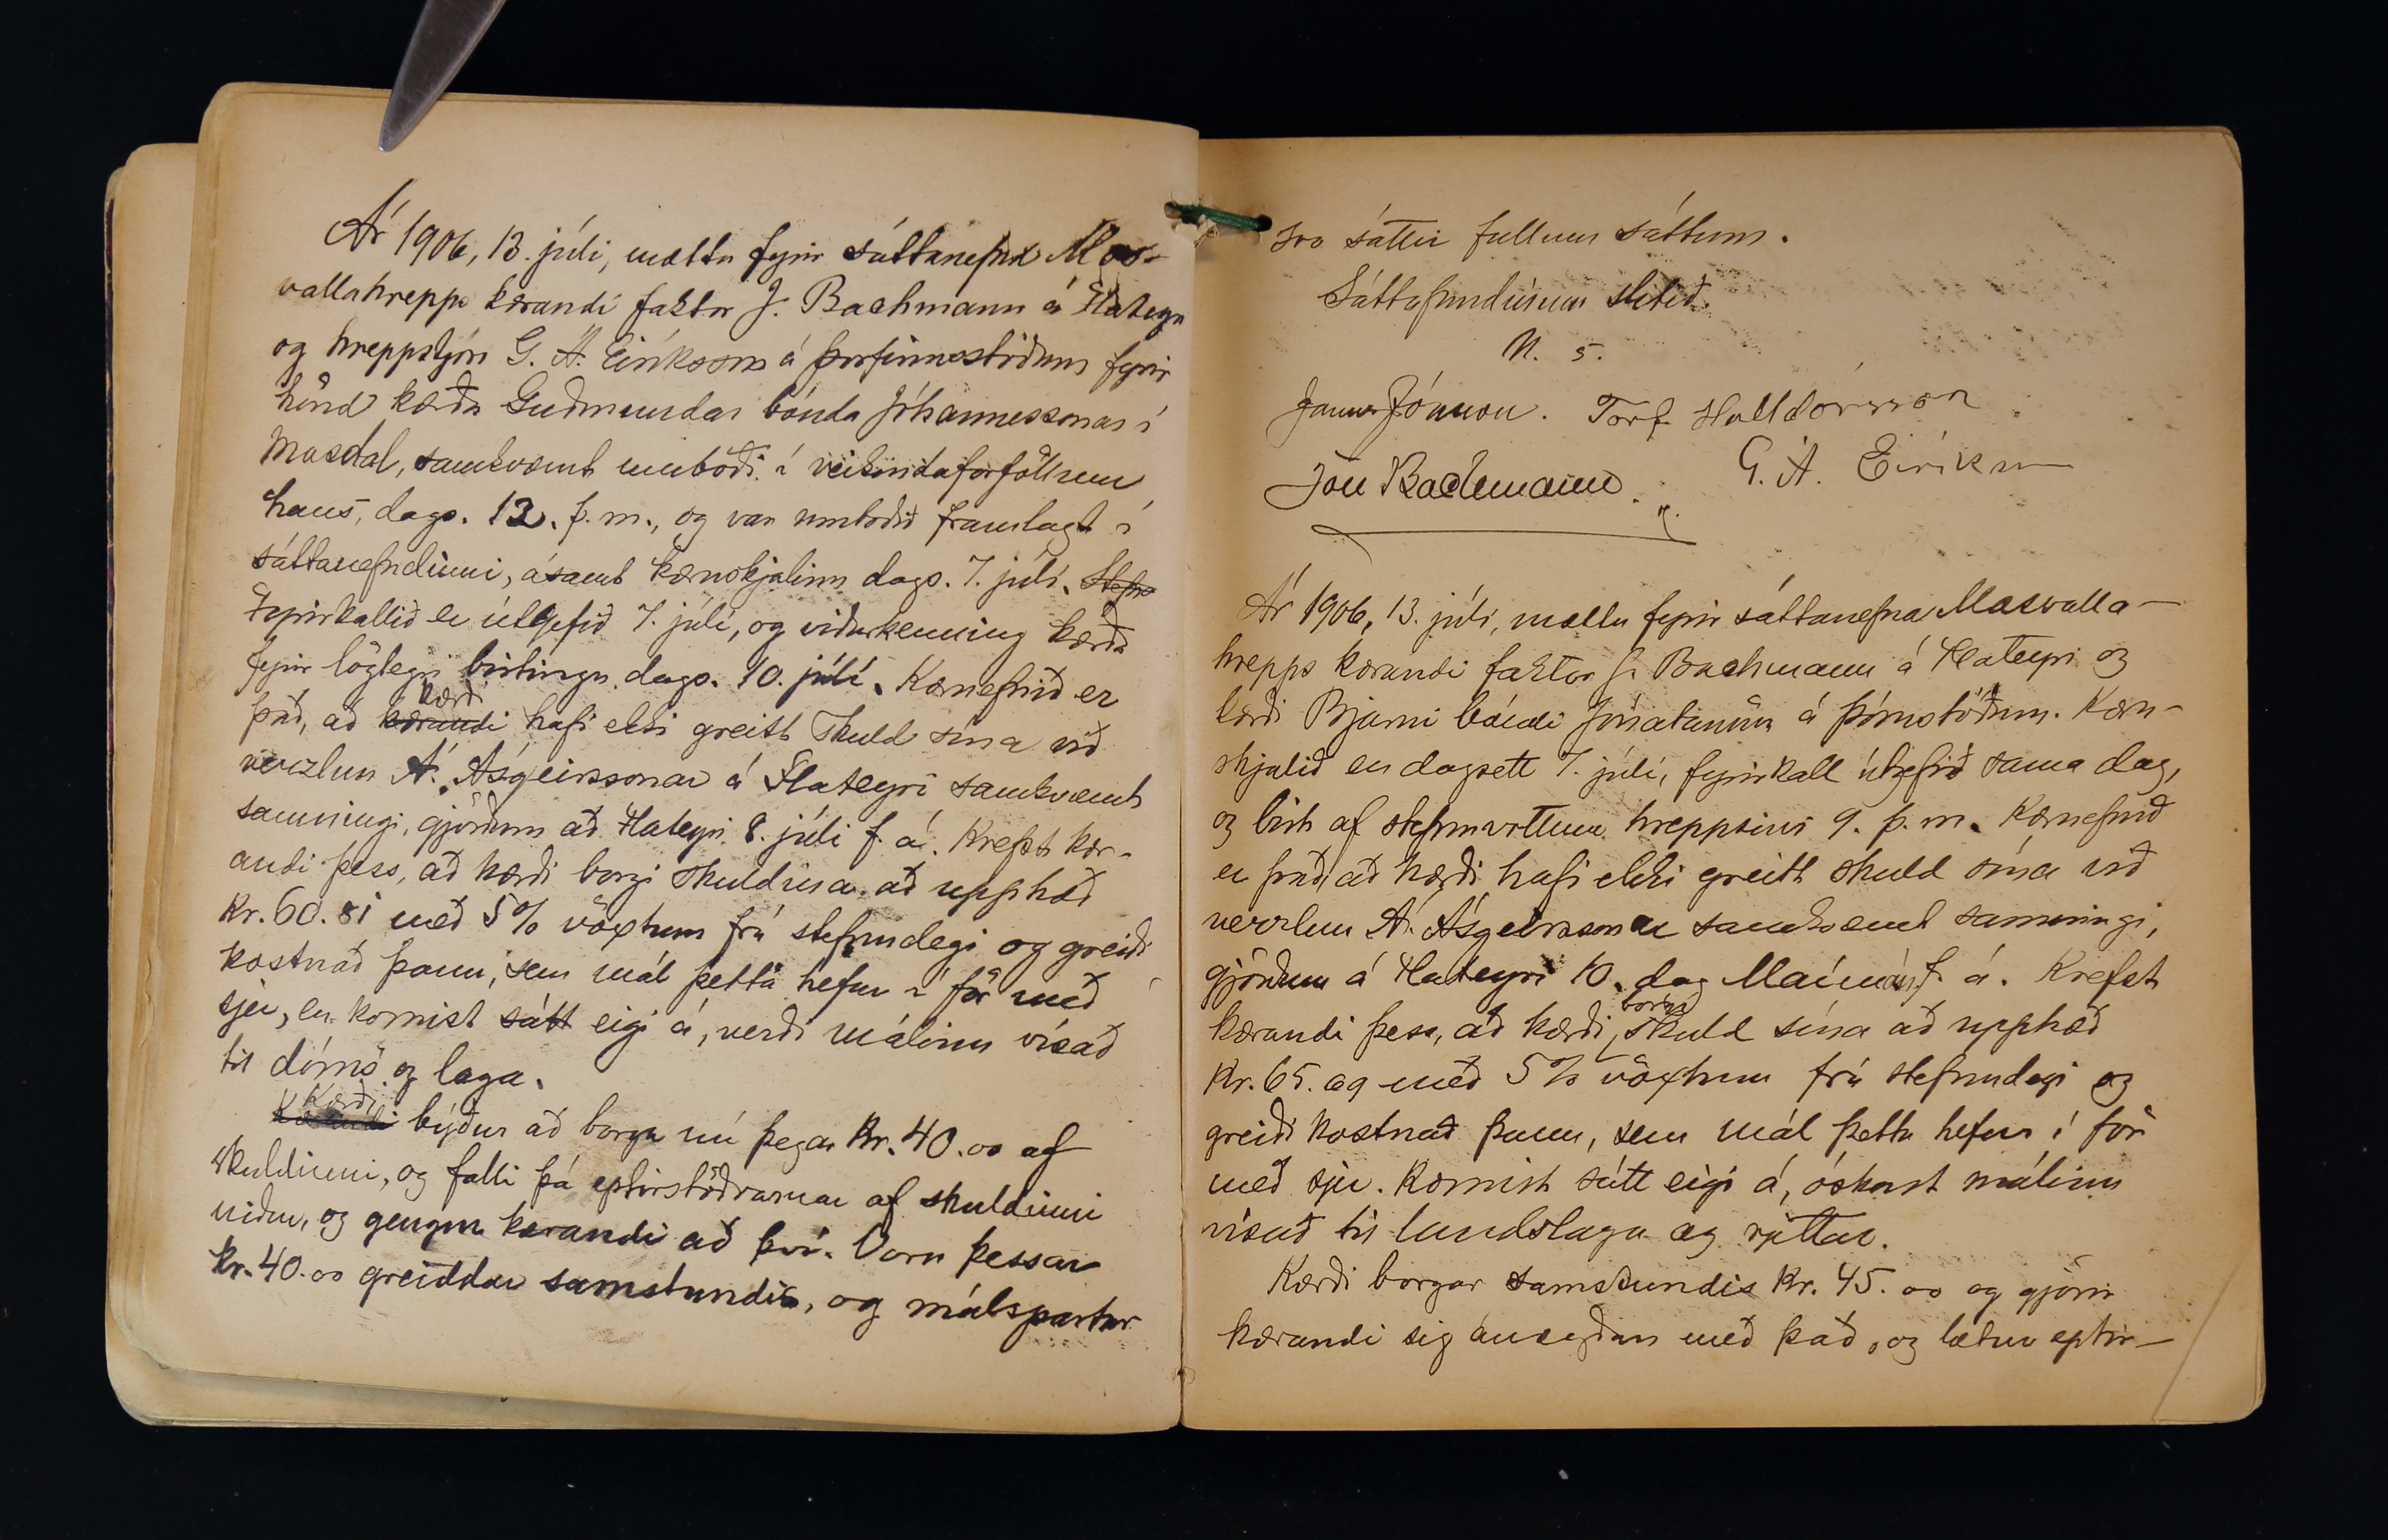 Ár 1906, 13. júli, mættu fyrir sáttanefnd Mos-
vallahrepps kærandi faktor J. Bachmann á Flateyri
og hreppstjóri G. Á. Eiríksson á Þorfinnsstöðum fyrir
hönd kærða Guðmundar bónda Jóhannessonar í
Mosdal, samkvæmt umboði í veikindaforföllum
hans, dags. 12. þ. m., og var umboðið framlagt í
sáttanefndinni, ásamt kæruskjalinu dags. 7. júlí. Stefn
Fyrirkallið er útgefið 7. júlí, og viðurkenning kærða
fyrir löglegri birtingu dags. 10. júlí. Kæruefnið er
það, að kærandi kærði hafi ekki greitt skuld sína við
verzlun Á. Ásgeirssonar á Flateyri samkvæmt
samningi, gjörðum að Flateyri 8. júlí f. á. Krefst kær-
andi þess, að kærði borgi skuldina að upphæð
Kr. 60.81 með 5% vöxtum frá stefnudegi og greiði
kostnað þann, sem mál þetta hefur í för með
sjer, en komist sátt eigi á, verði málinu vísað
til dóms og laga.
Kærandi Kærði býður að borga nú þegar Kr. 40.00 af
skuldinni, og falli þá eptirstöðvarnar af skuldinni
niður, og gengur kærandi að því. Voru þessar
kr. 40.00 greiddar samstundis, og málspartar
svo sáttir fullum sáttum.
Sáttafundinum slitið.
U. s.
Jónsson. Torf. Halldórsson
Jón Bachmann. G. Á. Eiríksson
Ár 1906, 13. júlí, mættu fyrir sáttanefnd Mosvalla-
hrepps kærandi faktor J. Bachmann á Flateyri og
kærði Bjarni bóndi Jónatansson á Þórustöðum. Kæru-
skjalið er dagsett 7. júlí, fyrirkall útgefið sama dag,
og birt af stefnuvottum hreppsins 9. þ. m. Kæruefnið
er það, að kærði hafi ekki greitt skuld sína við
verzlun Á. Ásgeirssonar samkvæmt samningi,
gjörðum á Flateyri 10. dag Maímán. f. á. Krefst
kærandi þess, að kærði borgi skuld sína að upphæð
Kr. 65.09 með 5% vöxtum frá stefnudegi og
greiði kostnað þann, sem mál þetta hefur í för
með sjer. Komist sátt eigi á, óskast málinu
vísað til landslaga og rjettar.
Kærði borgar samstundis Kr. 45.00 og gjörir
kærandi sig ánægðan með það, og lætur eptir-